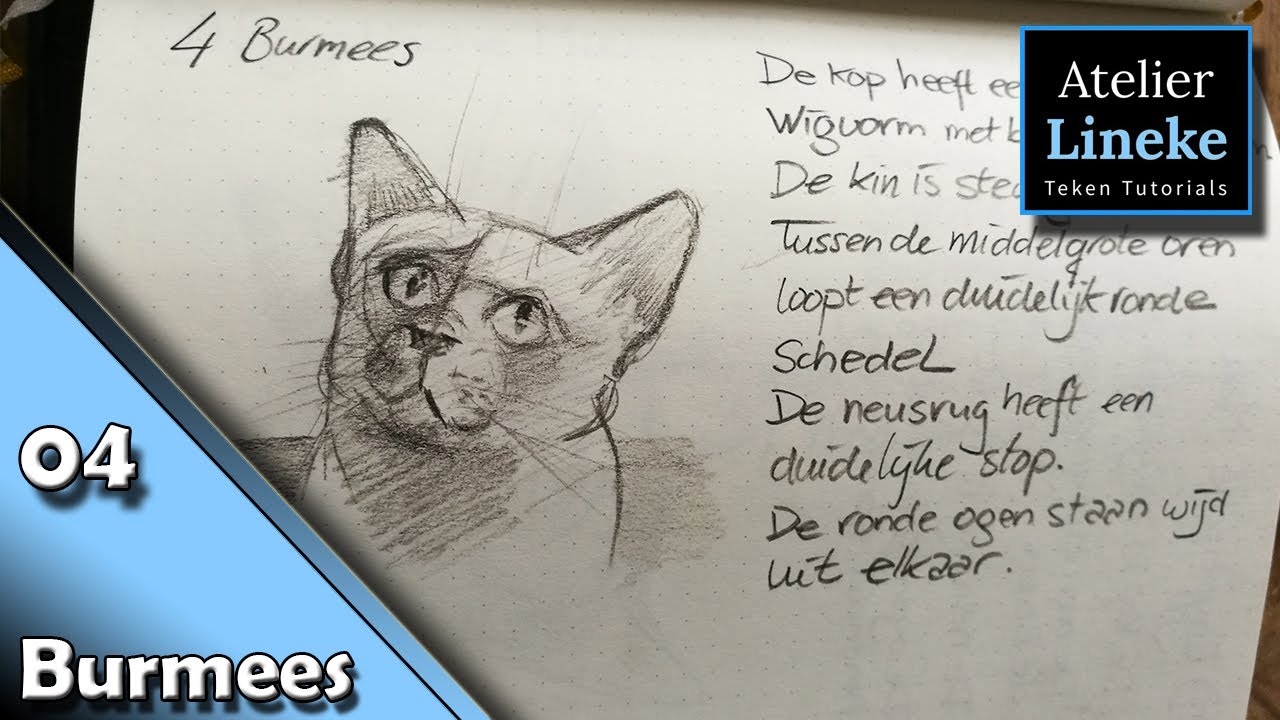 4 Burmees
De kop heeft
Wigvorm met
De kin is
Tussen de middelgrote oren
loopt een duidelijk ronde
Schedel
De neusrug heeft een
duidelijke stop.
De ronde ogen staan wijd
uit elkaar.
Atelier
Lineke
Teken Tutorials
04
Burmees